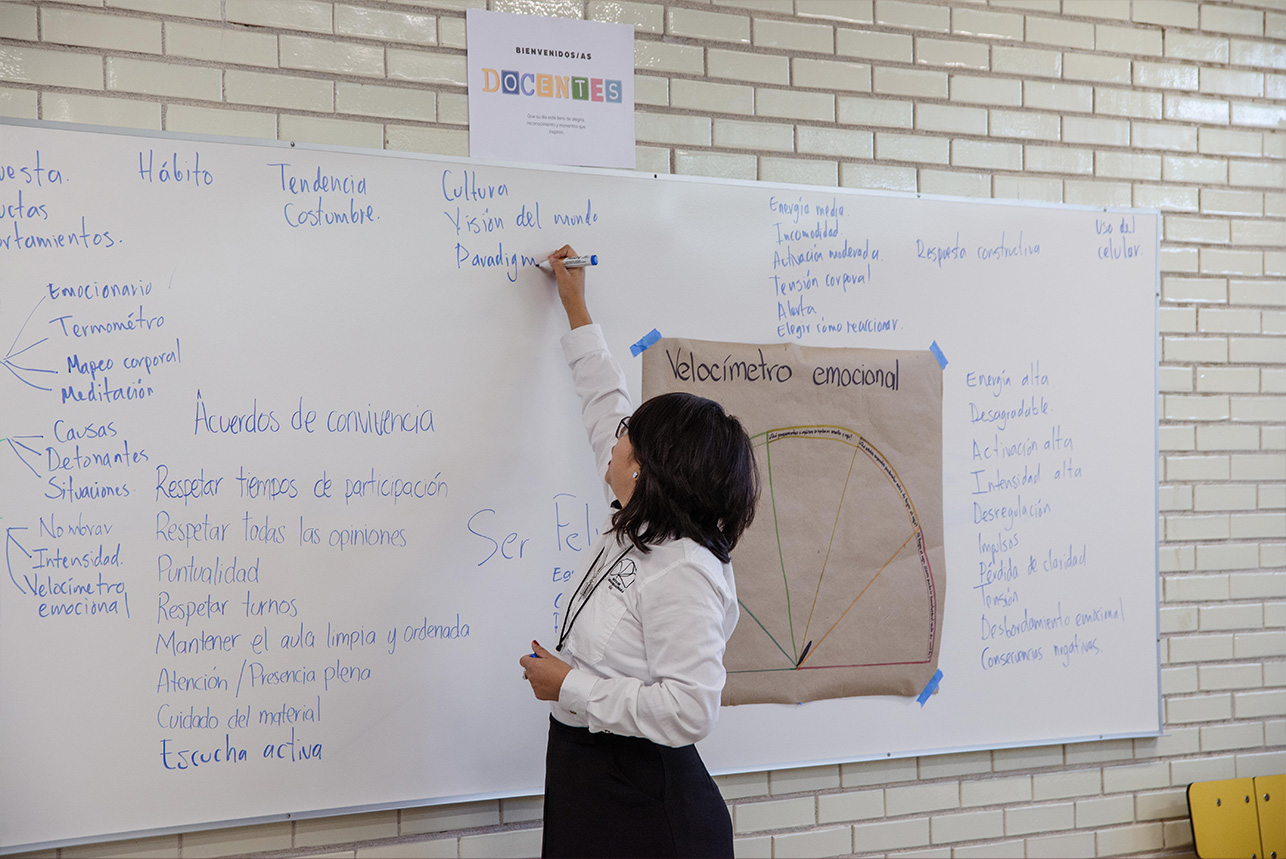 BIENVENIDOS/AS
DOCENTES
Hábito
Tendencia
Costumbre.
Cultura
Visión del mundo
Paradigm
Energía media.
Incomodidad.
Activación moderada.
Tensión corporal
Alerta
Elegir cómo reaccionar.
Respuesta constructiva
Uso del
celular.
Emocionario
Termométro
Mapeo corporal
Meditación
Causas
Detonantes
Situaciones.
Nombrar
Intensidad.
Velocímetro
emocional
Acuerdos de convivencia
Respetar tiempos de participación
Respetar todas las opiniones
Puntualidad
Respetar turnos
Mantener el aula limpia y ordenada
Atención / Presencia plena
Cuidado del material
Escucha activa
Ser
Velocímetro emocional
Energía alta
Desagradable.
Activación alta
Intensidad alta
Desregulación
Impulsos
Pérdida de claridad
Tensión
Desbordamiento emocional
Consecuencias negativas.